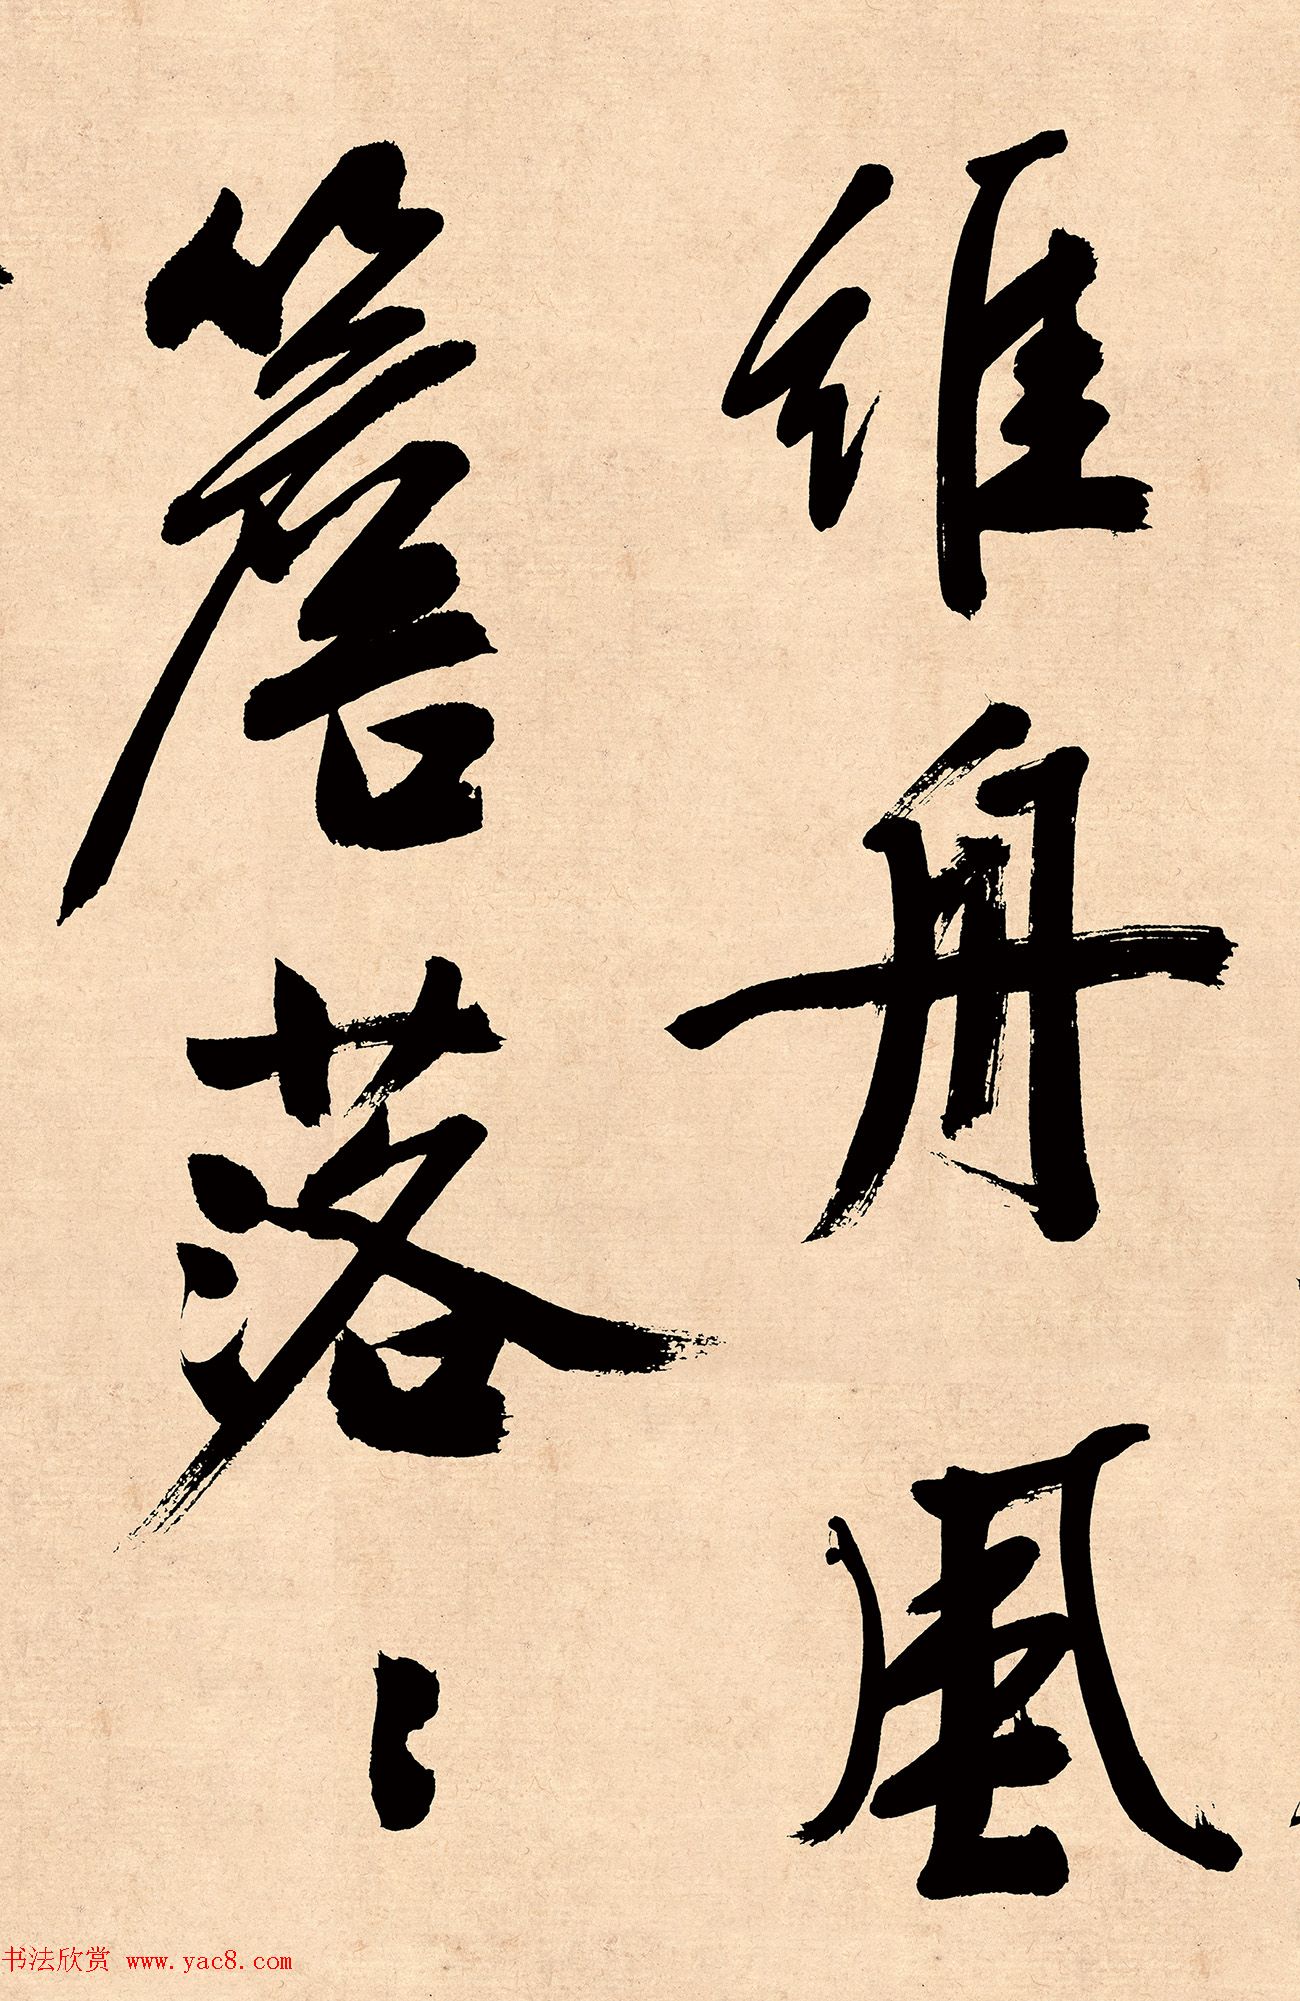 维舟風
簷落〻
书法欣赏 www.yac8.com